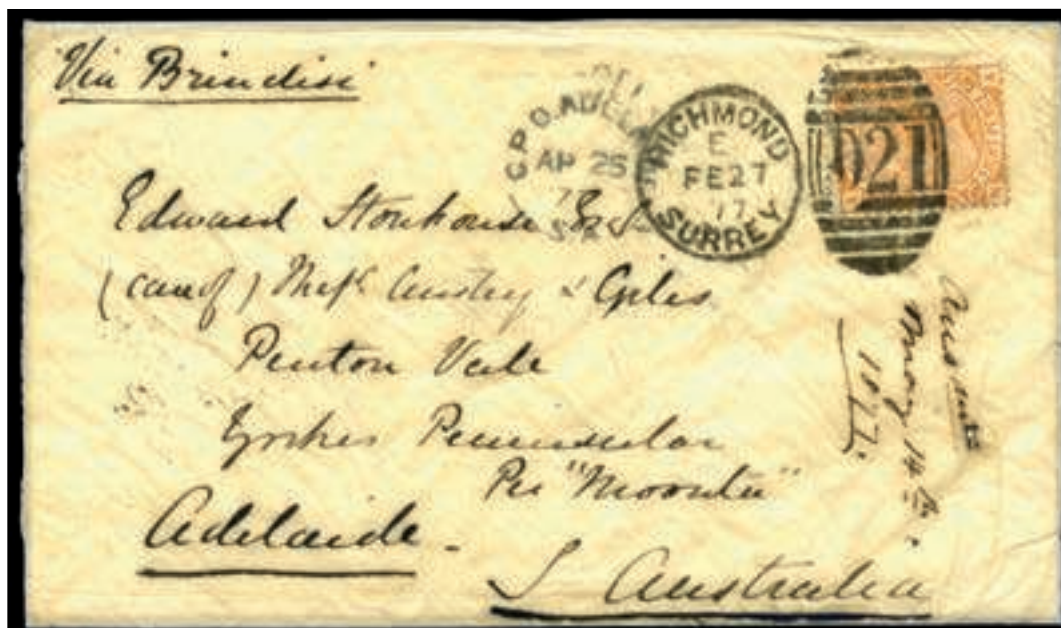 Via Brindisi
G.P.O. ADELA
AP 25
7
RICHMOND
E
FE 27
77
SURREY
021
Edward Stonhouse Esq
(care of) Messrs Anstey & Giles
Penton Vale
Yorkes Peninsular
Per "Moonta"
Adelaide
S Australia
May 14th
1877